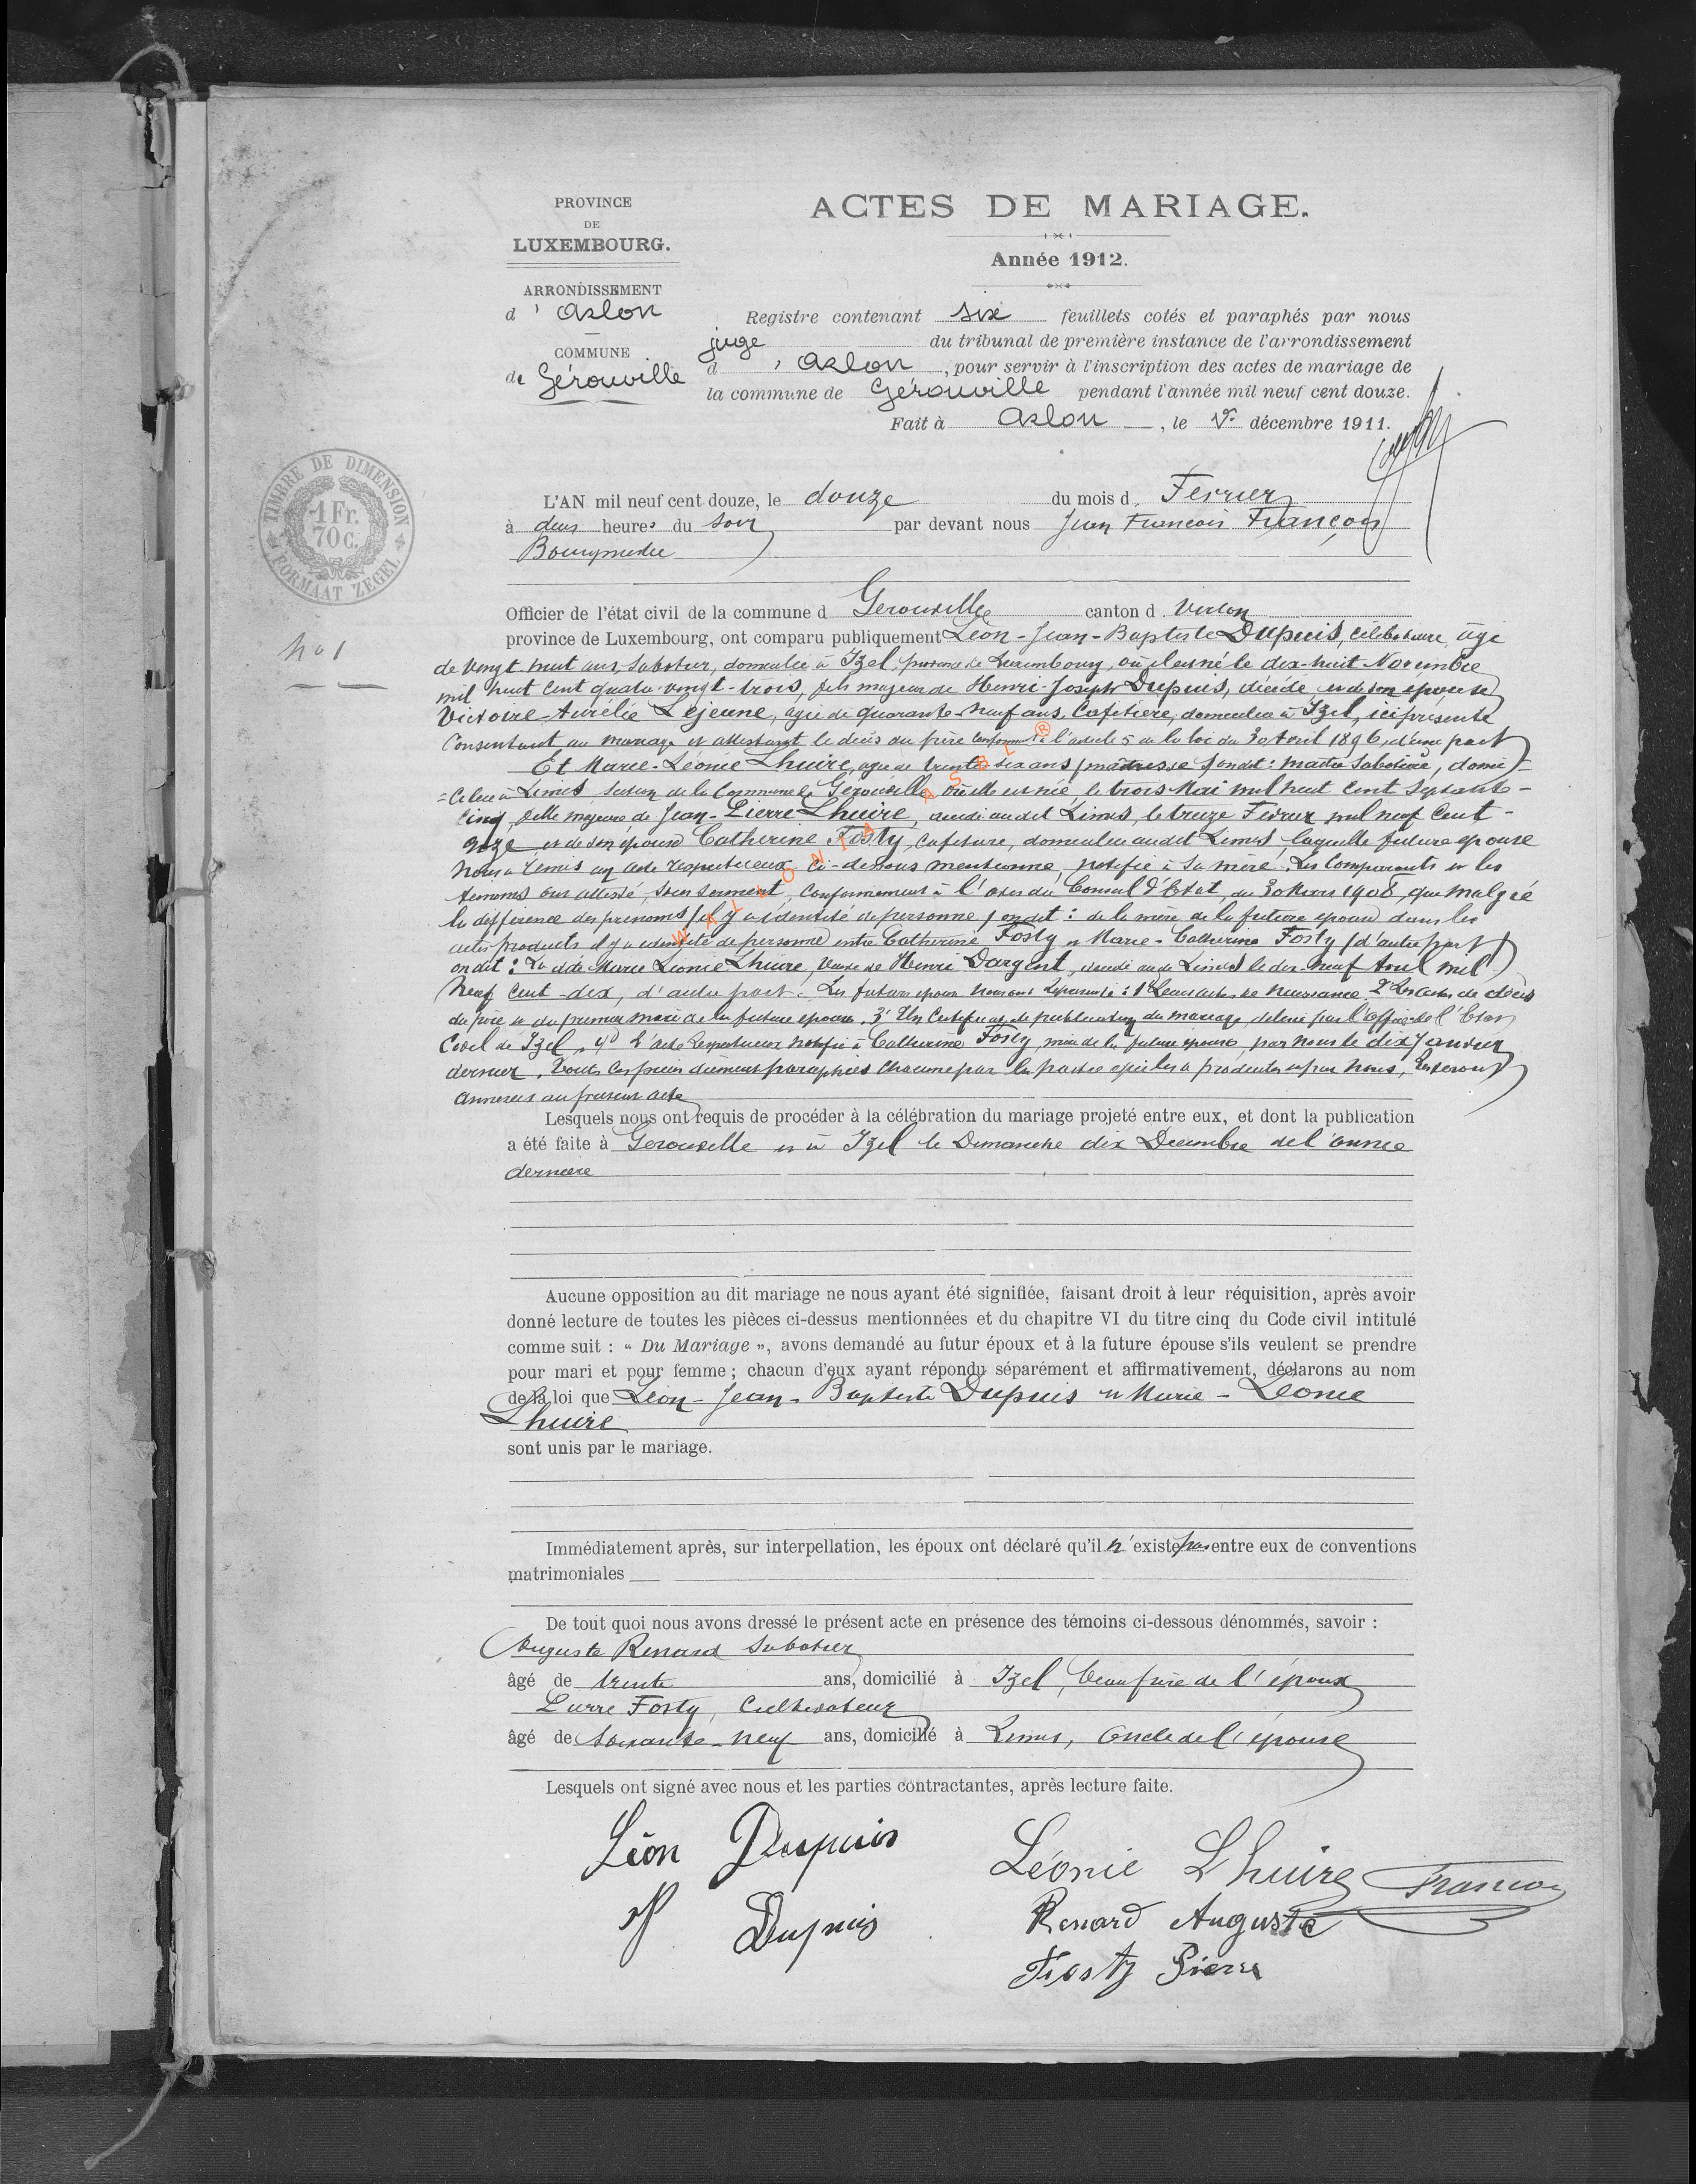 PROVINCE
DE
LUXEMBOURG.
ARRONDISSEMENT
d' Arlon
COMMUNE
de Gérouville
ACTES DE MARIAGE.
Année 1912.
Registre contenant six feuillets cotés et paraphés par nous
juge du tribunal de première instance de l'arrondissement
d'Arlon, pour servir à l'inscription des actes de mariage de
la commune de Gérouville pendant l'année mil neuf cent douze.
Fait à Arlon, le décembre 1911.
TIMBRE DE DIMENSION
1 Fr.
70 c.
FORMAAT ZEGEL
No 1
L'AN mil neuf cent douze, le douze du mois d Fevrier
à deux heures du soir par devant nous Jean François François
Bourgmestre
Officier de l'état civil de la commune d Gerouville canton d Virton
province de Luxembourg, ont comparu publiquement Léon-Jean-Baptiste Dupuis, célibataire, âgé
de vingt huit ans, sabotier, domicilié à Izel, province de Luxembourg, où il est né le dix-huit Novembre
mil huit cent quatre-vingt-trois, fils majeur de Henri-Joseph Dupuis, décédé, et de son épouse
Victoire-Aurélie Lejeune, agée de quarante-neuf ans, Cafetière, domiciliée à Izel, ici présente
Consentant au mariage et attestant le décès du père conformément à l'article 5 de la loi du 30 Avril 1896, d'une part
Et Marie-Léonie Lhuire, agée de trente-six ans (maîtresse) on dit: maître Sabotière, domi-
=ciliée à Limes, section de la Commune de Gérouville, où elle est née, le trois Mai mil huit cent septante-
cinq, fille majeure de Jean-Pierre Lhuire, décédé audit Limes, le treize Février mil neuf cent-
onze et de son épouse Catherine Fosty, cafetière, domiciliée audit Limes laquelle future épouse
nous a remis un acte respectueux ci-dessous mentionné, notifié à sa mère. Les Comparants et les
temoins ont attesté, sous serment, conformément à l'avis du Conseil d'Etat, du 30 Mars 1908, que malgré
la différence des prenoms (il y a identité de personne) on dit: de la mère de la future épouse dans les
actes produits il y a identité de personne entre Catherine Fosty et Marie-Catherine Fosty (d'autre part)
on dit: La dite Marie Léonie Lhuire, veuve de Henri Dargent, décédé audit Limes le dix-neuf Avril mil
neuf cent-dix, d'autre part. Les futurs époux nous ont représenté: 1° Leurs actes de Naissance 2° Les actes de décès
du père et du premier mari de la future épouse. 3° Un Certificat de publication du mariage, délivré par l'Officier de l'Etat
Civil de Izel, 4° L'acte Respectueux notifié à Catherine Fosty mère de la future épouse, par nous le dix Janvier
dernier. Toutes ces pièces dûment paraphées chacune par la partie qui les a produites et par nous, resteront
annexées au présent acte
Lesquels nous ont requis de procéder à la célébration du mariage projeté entre eux, et dont la publication
a été faite à Gerouville et à Izel le Dimanche dix Decembre de l'année
dernière
Aucune opposition au dit mariage ne nous ayant été signifiée, faisant droit à leur réquisition, après avoir
donné lecture de toutes les pièces ci-dessus mentionnées et du chapitre VI du titre cinq du Code civil intitulé
comme suit : « Du Mariage », avons demandé au futur époux et à la future épouse s'ils veulent se prendre
pour mari et pour femme ; chacun d'eux ayant répondu séparément et affirmativement, déclarons au nom
de la loi que Léon-Jean-Baptiste Dupuis et Marie-Léonie
Lhuire
sont unis par le mariage.
Immédiatement après, sur interpellation, les époux ont déclaré qu'il n'existe pas entre eux de conventions
matrimoniales
De tout quoi nous avons dressé le présent acte en présence des témoins ci-dessous dénommés, savoir :
Auguste Renard Sabotier
âgé de trente ans, domicilié à Izel, beau frère de l'époux
Pierre Fosty, Cultivateur
âgé de soixante-neuf ans, domicilié à Limes, oncle de l'épouse
Lesquels ont signé avec nous et les parties contractantes, après lecture faite.
Léon Dupuis
Léonie Lhuire
François
Dupuis
Renard Auguste
Fosty Pierre
WALLONIA ASBL ®